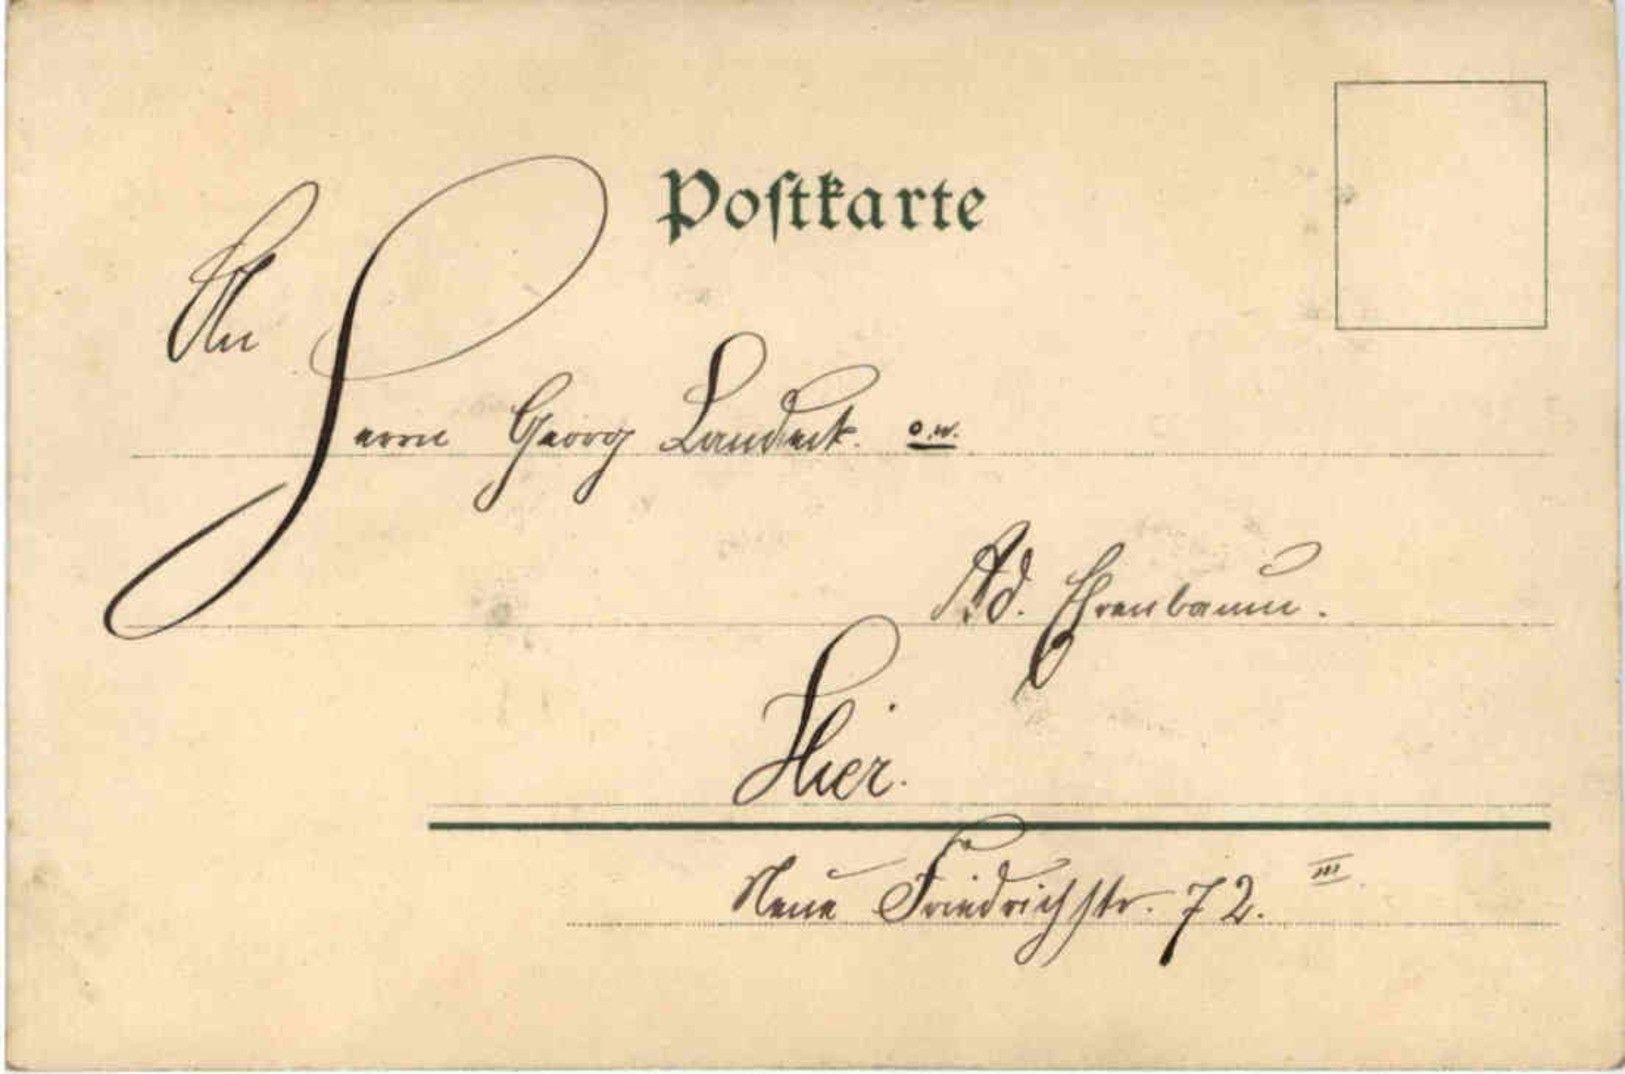 Postkarte
An
Herrn Georg Landeck. o.w.
Ad. Ehrenbaum.
Hier.
Neue Friedrichstr. 72. III.